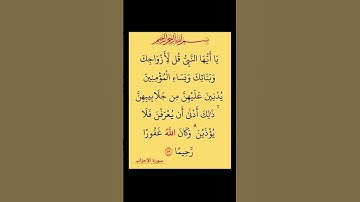 بسم الله الرحمن الرحيم
يَا أَيُّهَا النَّبِيُّ قُل لِّأَزْوَاجِكَ
وَبَنَاتِكَ وَنِسَاءِ الْمُؤْمِنِينَ
يُدْنِينَ عَلَيْهِنَّ مِن جَلَابِيبِهِنَّ
ۚ ذَٰلِكَ أَدْنَىٰ أَن يُعْرَفْنَ فَلَا
يُؤْذَيْنَ ۗ وَكَانَ اللَّهُ غَفُورًا
رَّحِيمًا ﴿٥٩﴾
سورة الاحزاب